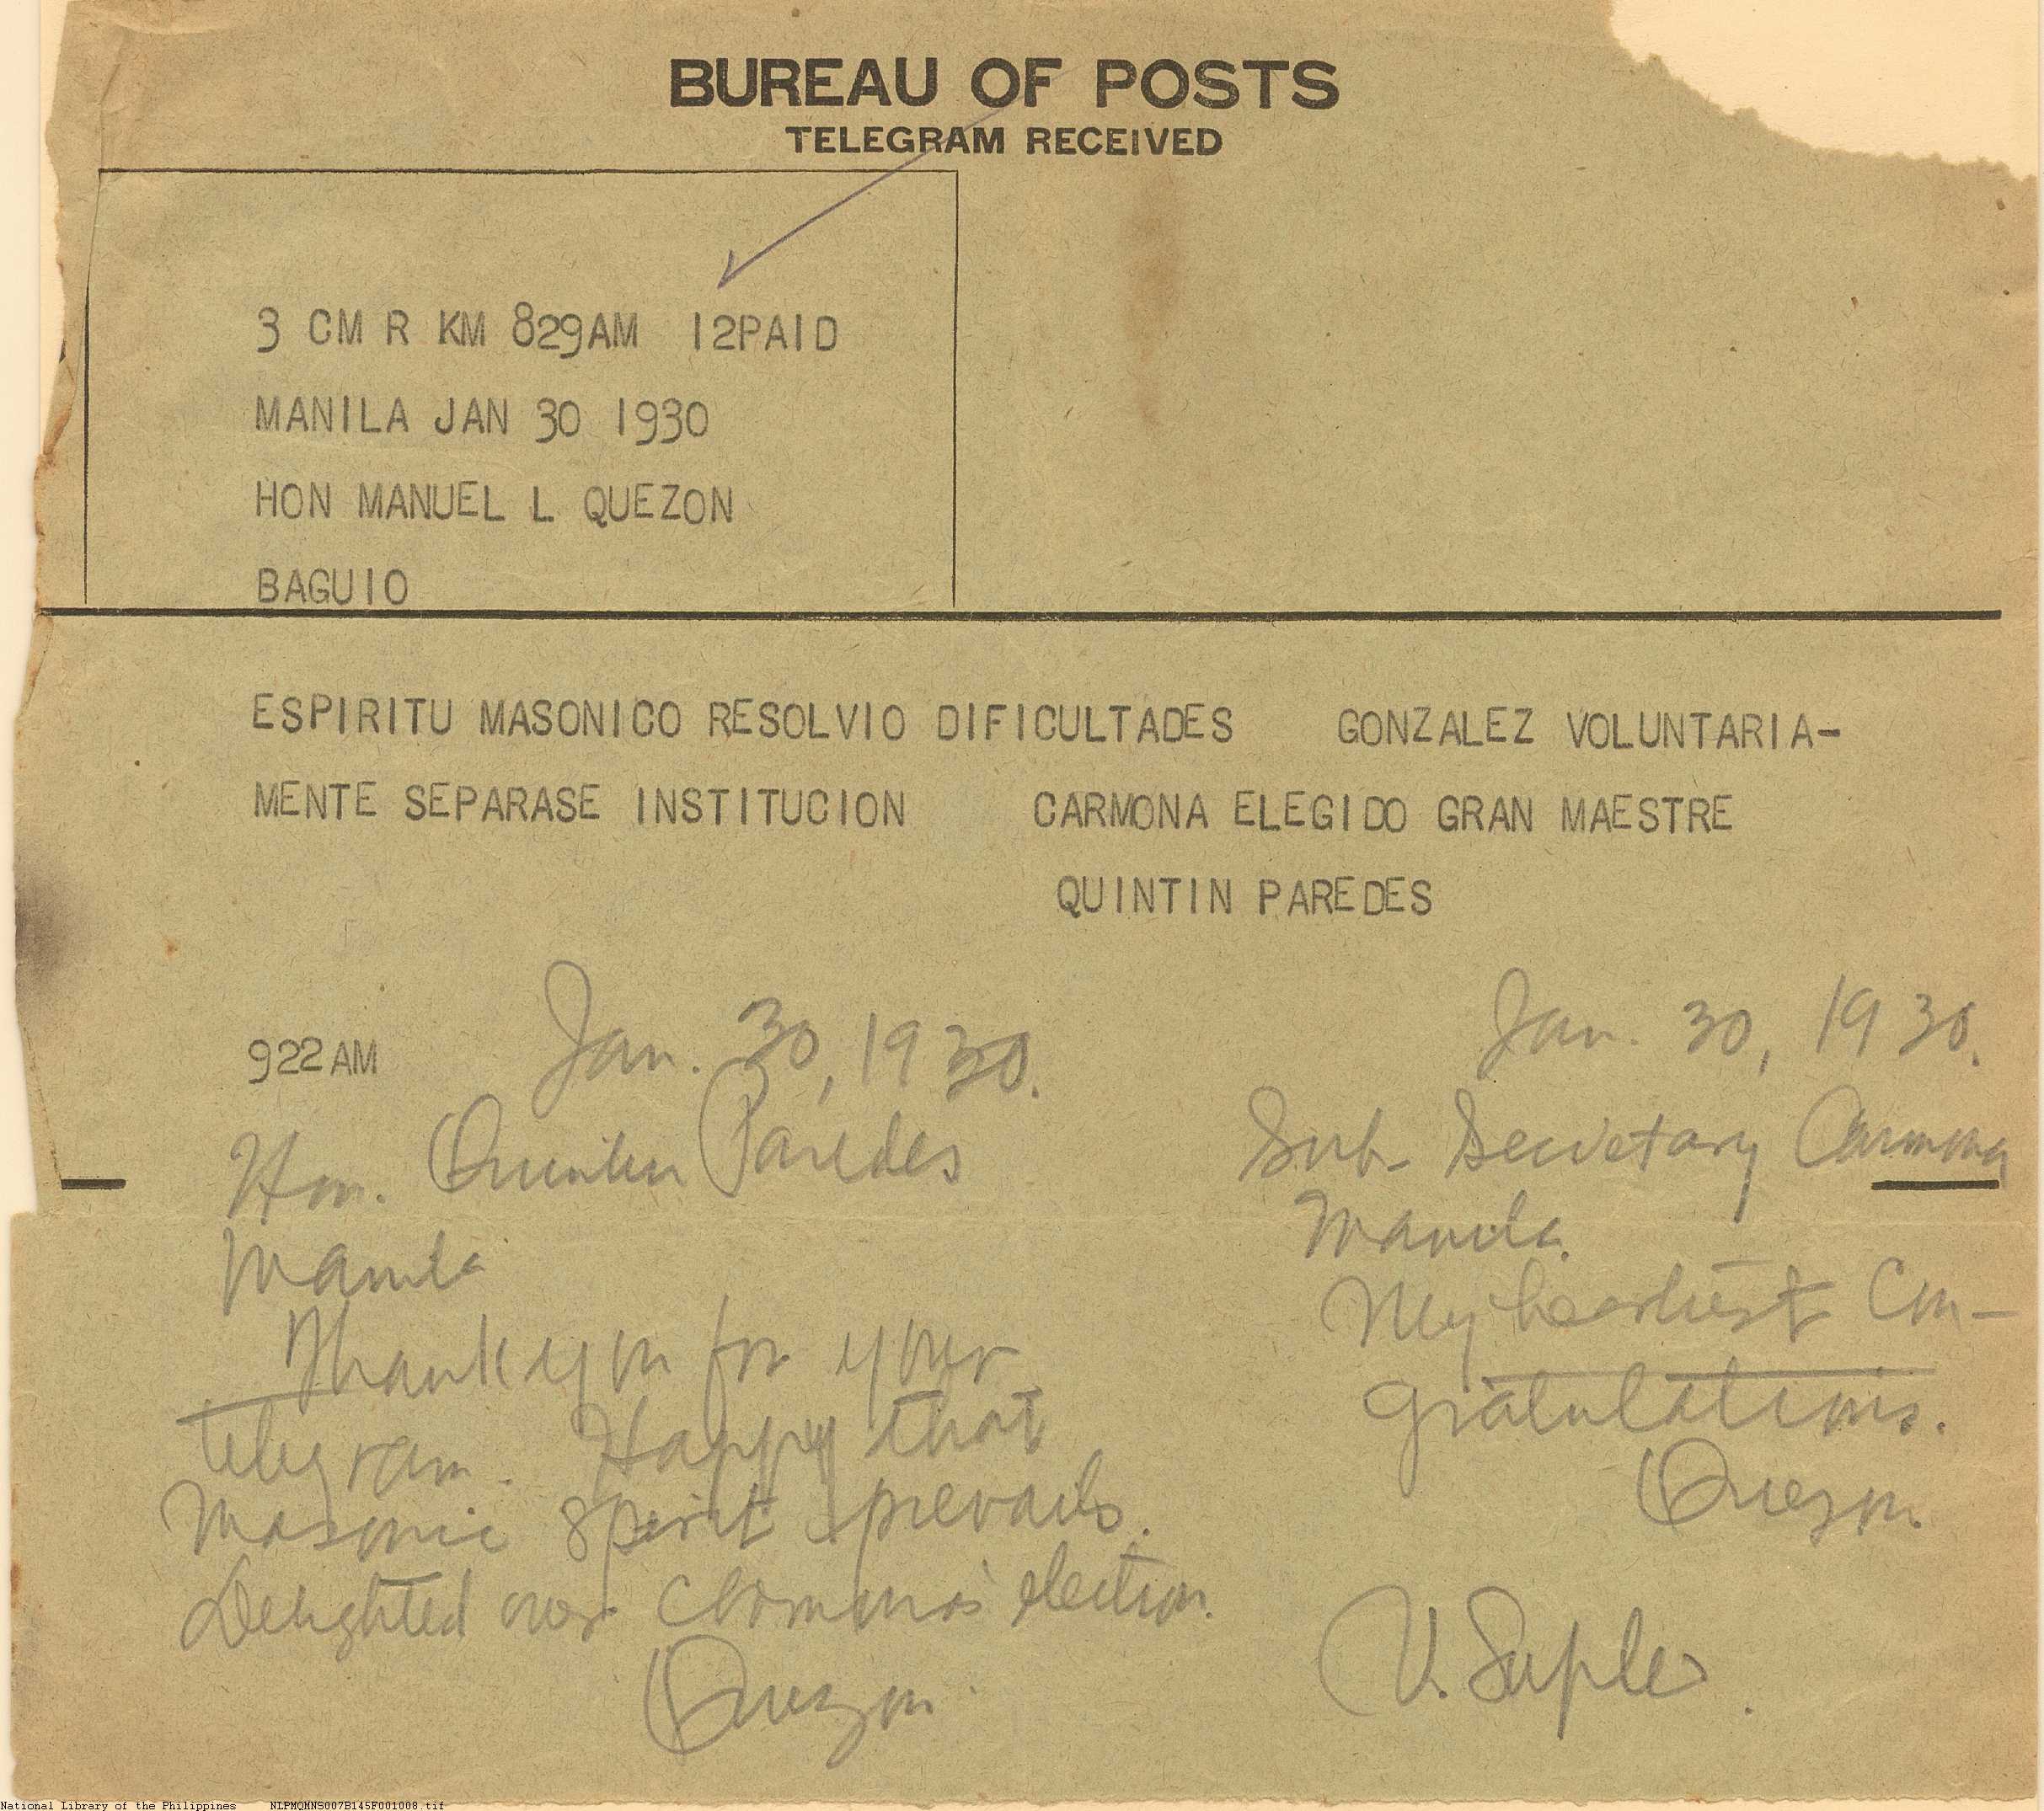 BUREAU OF POSTS
TELEGRAM RECEIVED
3 CM R KM 829AM 12PAID
MANILA JAN 30 1930
HON MANUEL L QUEZON
BAGUIO
ESPIRITU MASONICO RESOLVIO DIFICULTADES GONZALEZ VOLUNTARIA-
MENTE SEPARASE INSTITUCION CARMONA ELEGIDO GRAN MAESTRE
QUINTIN PAREDES
922AM
Jan. 30, 1930.
Hon. Quintin Paredes
Manila
Thank you for your
telegram. Happy that
Masonic spirit prevails.
Delighted over Carmona's election.
Quezon.
Jan. 30, 1930.
Sub-Secretary Carmona
Manila.
My heartiest Con-
gratulations.
Quezon.
V. Suple
National Library of the Philippines NLPMQMNS007B145F001008.tif